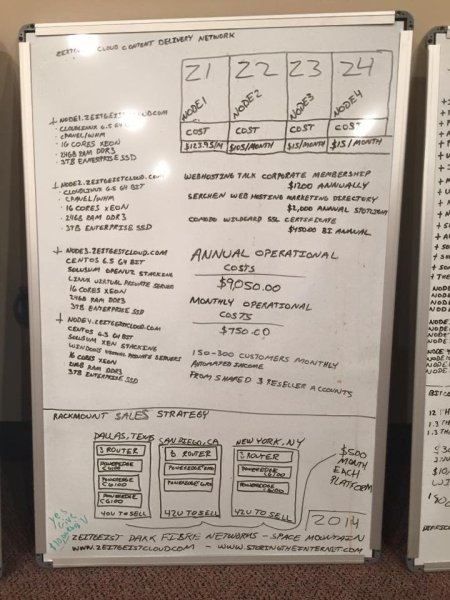 ZEITGEIST CLOUD CONTENT DELIVERY NETWORK
Z1 Z2 Z3 Z4
NODE1 NODE2 NODE3 NODE4
COST COST COST COST
$123.95/M $105/MONTH $15/MONTH $15/MONTH
+ NODE1.ZEITGEISTCLOUD.COM
• CLOUDLINUX 6.5 64 BIT
• CPANEL/WHM
• 16 CORES XEON
• 24GB RAM DDR3
• 3TB ENTERPRISE SSD
+ NODE2.ZEITGEISTCLOUD.COM
• CLOUDLINUX 6.5 64 BIT
• CPANEL/WHM
• 16 CORES XEON
• 24GB RAM DDR3
• 3TB ENTERPRISE SSD
+ NODE3.ZEITGEISTCLOUD.COM
CENTOS 6.5 64 BIT
SOLUSVM OPENVZ STACKING
LINUX VIRTUAL PRIVATE SERVER
16 CORES XEON
24GB RAM DDR3
3TB ENTERPRISE SSD
+ NODE4.ZEITGEISTCLOUD.COM
CENTOS 6.5 64 BIT
SOLUSVM XEN STACKING
WINDOWS VIRTUAL PRIVATE SERVERS
16 CORES XEON
24GB RAM DDR3
3TB ENTERPRISE SSD
WEBHOSTING TALK CORPORATE MEMBERSHIP
$1200 ANNUALLY
SERCHEN WEB HOSTING MARKETING DIRECTORY
$2,000 ANNUAL SPOTLIGHT
COMODO WILDCARD SSL CERTIFICATE
$450.00 BI ANNUAL
ANNUAL OPERATIONAL
COSTS
$9,050.00
MONTHLY OPERATIONAL
COSTS
$750.00
150-300 CUSTOMERS MONTHLY
AUTOMATED INCOME
FROM SHARED & RESELLER ACCOUNTS
RACKMOUNT SALES STRATEGY
DALLAS, TEXAS SAN DIEGO, CA NEW YORK, NY
ROUTER ROUTER ROUTER
POWEREDGE C6100
POWEREDGE C6100
POWEREDGE C6100
POWEREDGE
POWEREDGE
POWEREDGE C6100
POWEREDGE C6100
40U TO SELL 42U TO SELL 42U TO SELL
$500
MONTH
EACH
PLATFORM
2014
yes
GIVE
ZEITGEIST DARK FIBRE NETWORKS - SPACE MOUNTAIN
WWW.ZEITGEISTCLOUD.COM - WWW.STORINGTHEINTERNET.COM